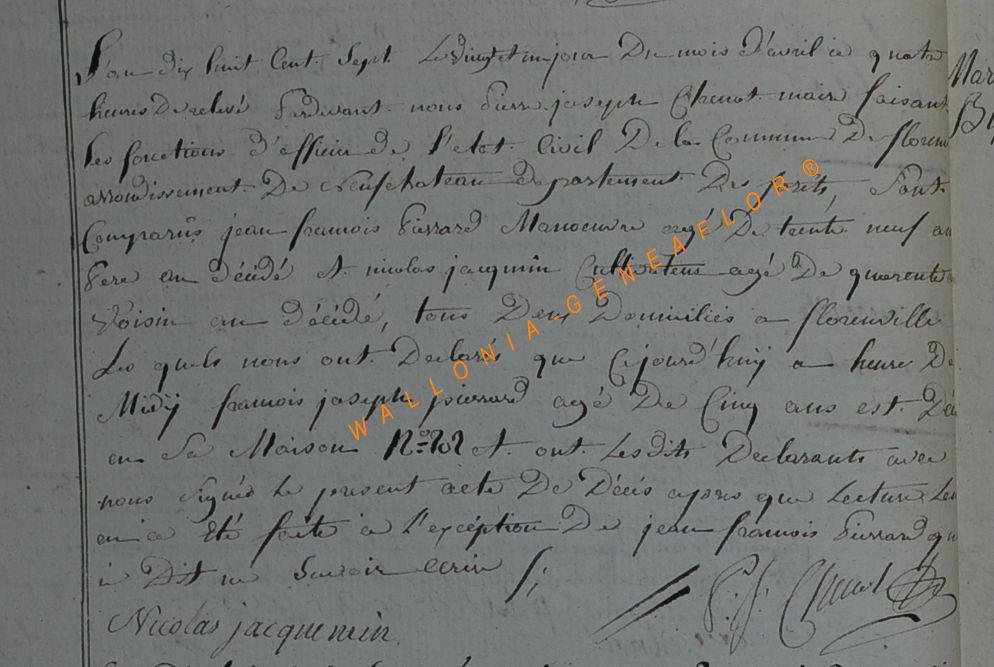 L'an dix huit Cent Sept Le vingt un jour Du mois d'avril à quatre
heures De relevé Pardevant nous Pierre joseph Chenot maire faisant
Les fonctions d'officier de l'etat Civil De la Commune De floren
arrondissement De neufchateau departement Des forêts Sont
Comparus jean francois Pierrard Manoeuvre agé De trente neuf an
Pere au décédé et nicolas jacqmin Cultivateur agé De quarente
Voisin au décédé, tous Deux Domiciliés a florenville
Les quels nous ont Declaré que Cejourd'huy a heure De
Midÿ francois joseph pierrard agé De Cinq ans est Dé
en Sa Maison N° et ont Lesdits Declarants avec
nous signés Le present acte De Décès apres que Lecture Leu
en a été faite à l'exception De jean francois Pierrard qu
à Dit ne Savoir ecrire
P. J. Chenot
Nicolas jacquemin
Mar
WALLONIA-GENEAFLOR®